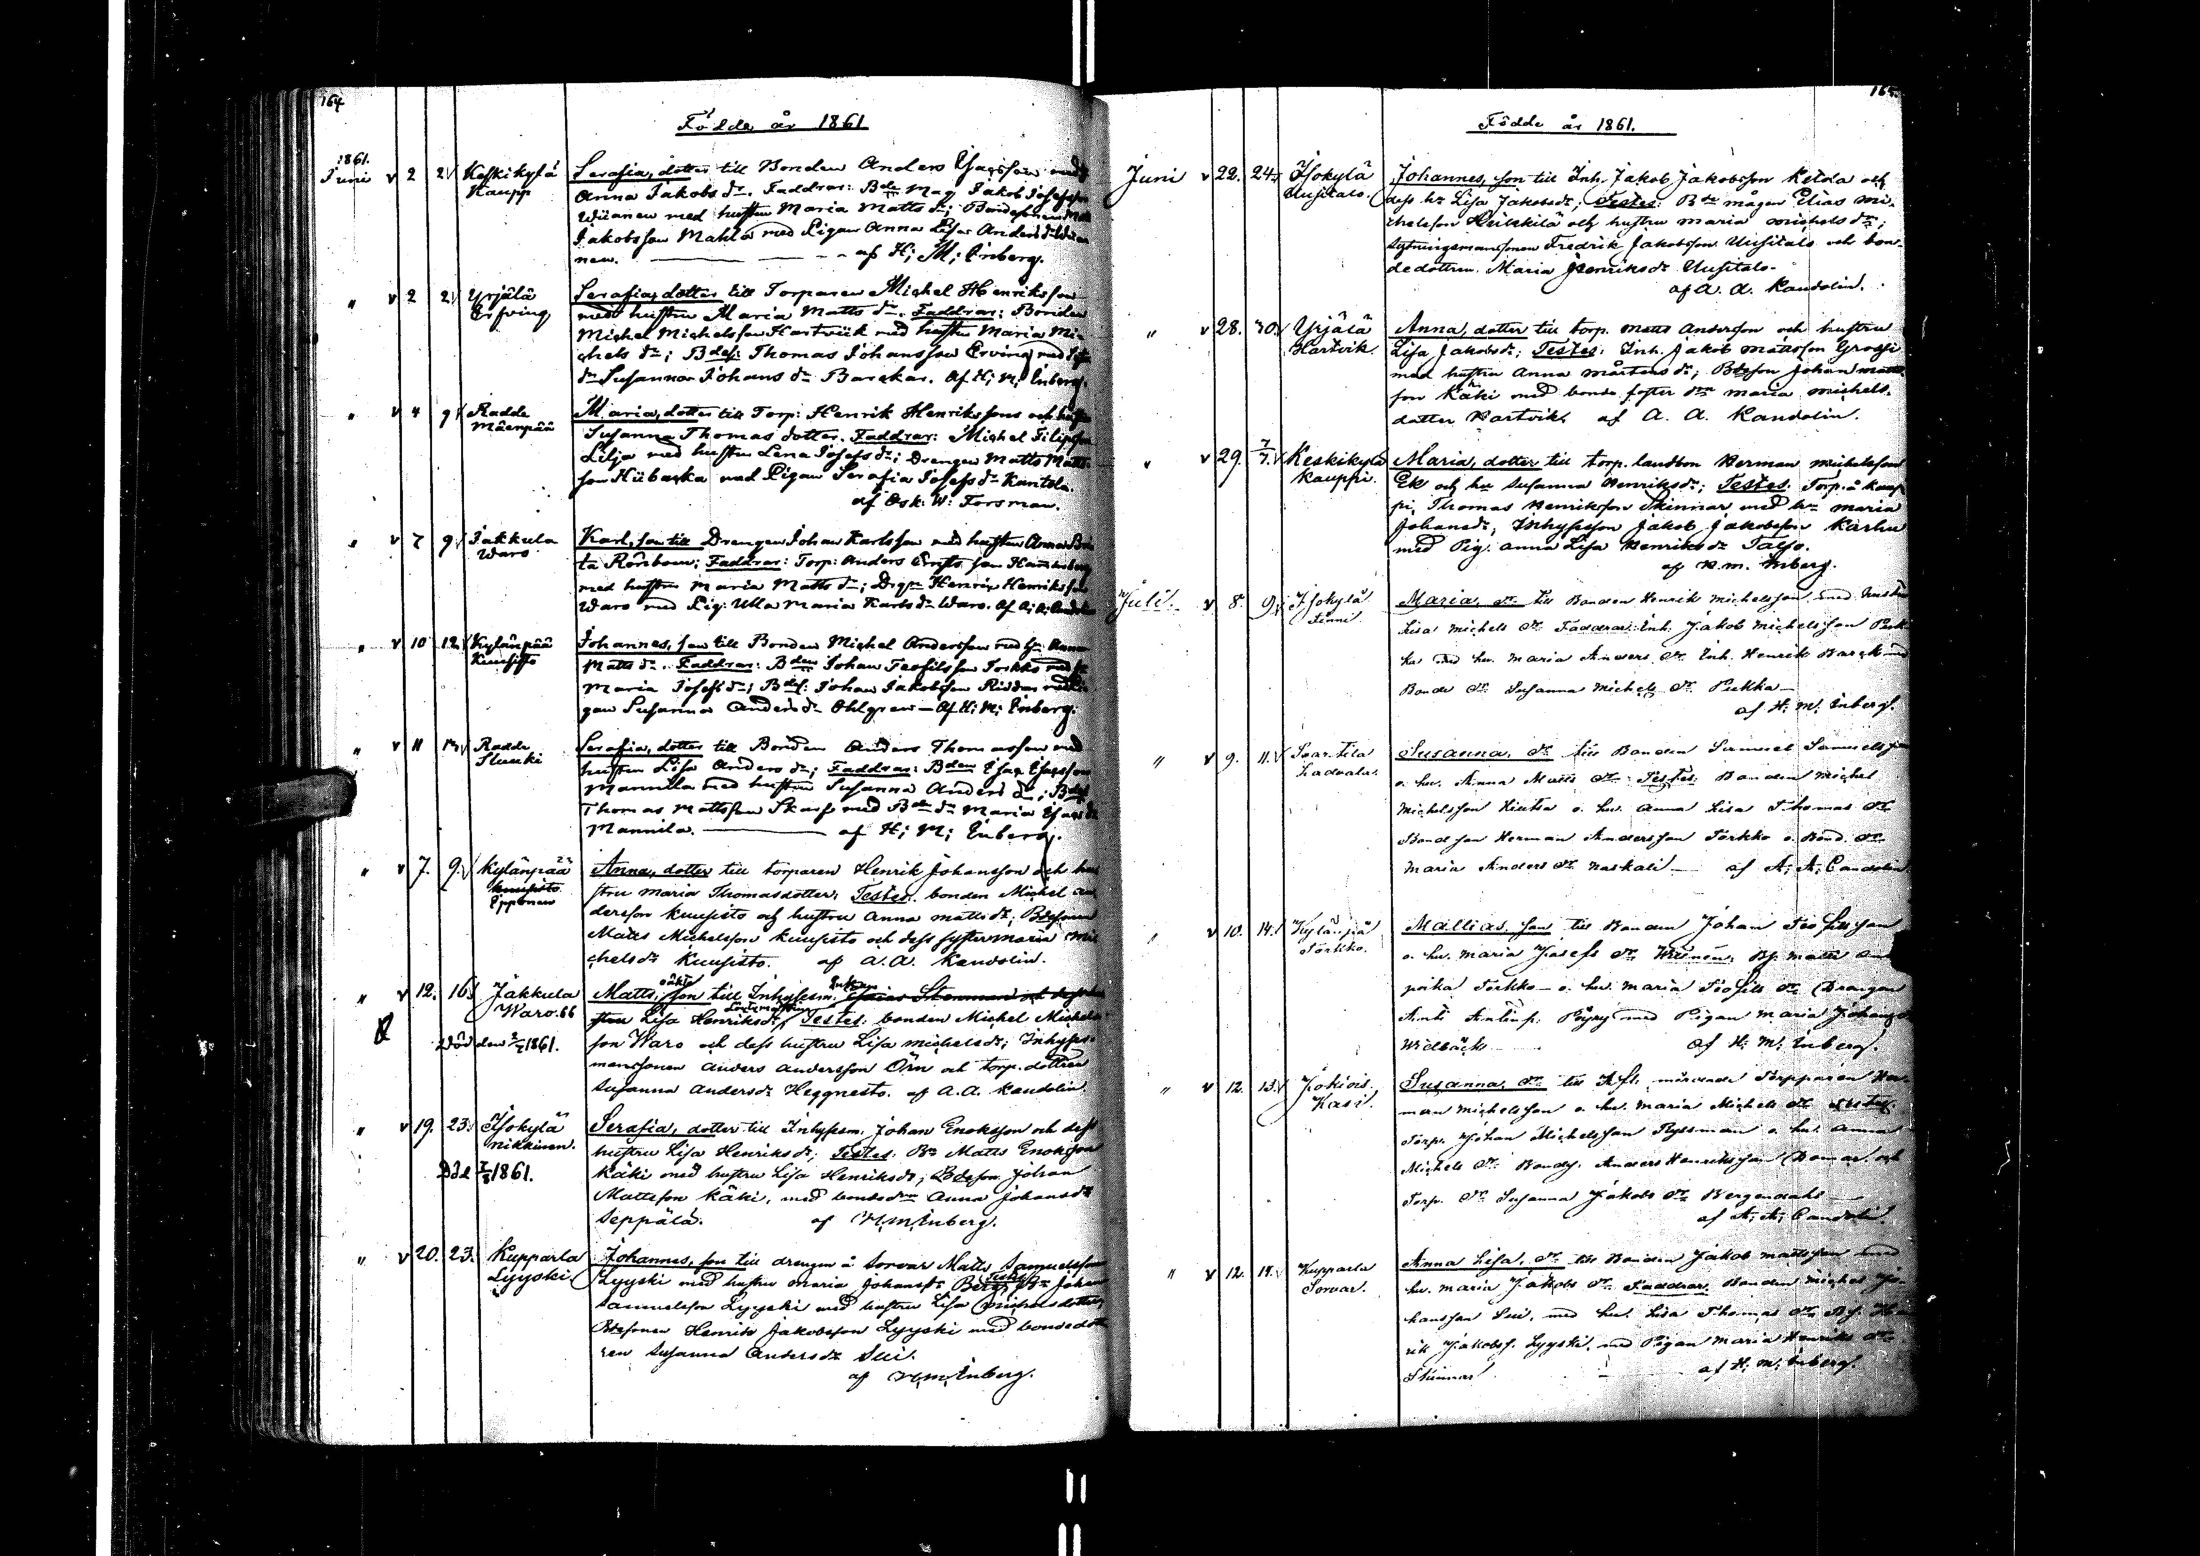 164
Födde år 1861
1861.
Juni v 2 2 Keskikylä Kaupp
Serafia, dotter till Bonden Anders Esaysson med
Anna Jakobs dr. Faddrar: Bde mag Jakob Josefsson
Wiianen med hustru Maria Matts dr; Bondesonen
Jakobsson Mahla med Pigan Anna Lisa Anders dr
nen. — af H; M; Enberg.
" v 2 2 Yrjälä Erfving
Serafia, dotter till Torparen Michel Henriksson
med hustru Maria Matts dr. Faddrar: Bonden
Michel Michelsson Hartviik med hustru Maria Mi-
chels dr; Bdes: Thomas Johansson Erving med
dr Susanna Johans dr Barckar. Af H; M; Enberg.
" v 4 9 Radde Mäenpää
Maria, dotter till Torp: Henrik Henriksson och hustru
Susanna Thomas dotter. Faddrar: Michel Filipsson
Lilja med hustru Lena Josefs dr; Drengen Matts Matts-
son Hübacka med Pigan Serafia Josefs dr Kantola.
af Osk. W: Forsman.
" v 7 9 Jakkula Waro
Karl, son till Drengen Johan Karlsson med hustru Anna
ta Rönbom; Faddrar: Torp: Anders Ernsts son
med hustru Maria Matts dr; Drgn Henrik Henriksson
Waro med Pig: Ulla Maria Karls dr Waro. Af A; A;
" v 10 12 Kylänpää Kuusisto
Johannes, son till Bonden Michel Andersson med hu Anna
Matts dr. Faddrar: Bden Johan Teofilsson Torkko med
Maria Josefs dr; Bdes: Johan Jakobsson Riddar med
gan Susanna Anders dr Ohlgren — Af H; M; Enberg.
" v 11 Radde
Serafia, dotter till Bonden Anders Thomasson med
hustru Lisa Anders dr; Faddrar: Bden Esay Esaysson
Mannila med hustru Susanna Anders dr;
Thomas Mattsson Skarp med Bde dr Maria Esays dr
Mannila. — af H; M; Enberg.
" v 7. 9. Kylänpää Kuusisto Epponen
Anna, dotter till torparen Henrik Johansson och hu
stru Maria Thomasdotter; Testes. bonden Michel An
dersson Kuusisto och hustru Anna Matts dr; Bdesonen
Matts Michelsson Kuusisto och dess syster Maria Mi
chels dr Kuusisto. af A. A. Kandolin.
" v 12. 16. Jakkula Waro. 66
Död den 1861.
Matts, oäkta son till Inhysesm. Enkan
stru Lisa Henriksdr, Testes: bonden Michel Michels-
son Waro och dess hustru Lisa Michelsdr; Inhyses-
mansonen Anders Andersson Örn och torp. dottren
Susanna Andersdr Heggnesto. af A. A. Kandolin.
" v 19. 23. Isokylä Nikkinen.
Död 1861.
Serafia, dotter till Inhysesm. Johan Enoksson och dess
hustru Lisa Henriksdr; Testes: Bn Matts Enoksson
Käki med hustru Lisa Henriksdr; Bdeson Johan
Mattsson Käki, med bondedr Anna Johansdr
Seppälä. af H. M. Enberg.
" v 20. 23. Kupparla Lyyski
Johannes, son till drengen å Sorvar Matts Samuelsson
Lyyski med hustru Maria Johansdr Berg; Testes: Bn Johan
Samuelsson Lyyski med hustru Lisa Michelsdotter,
Bdesonen Henrik Jakobsson Lyyski med bondedott
ren Susanna Andersdr Sui.
af H. M. Enberg.
165.
Födde år 1861.
Juni v 22. 24. Isokylä Uusitalo.
Johannes, son till Inh. Jakob Jakobsson Ketola och
dess hu Lisa Jakobsdr; Testes: Bde mågen Elias Mi-
chelsson Heikkilä och hustru Maria Michelsdr;
sytningsmansonen Fredrik Jakobsson Uusitalo och bon-
dedottren Maria Henriksdr Uusitalo.
af A. A. Kandolin.
" v 28. 30. Yrjälä Hartvik.
Anna, dotter till torp. Matts Andersson och hustru
Lisa Jakobsdr; Testes: Inh. Jakob Mattsson Grossi
med hustru Anna Mårtensdr; Bdeson Johan Matts
son Käki med bonde foster dr Maria Michels-
dotter Hartvik. af A. A. Kandolin.
" v 29. 7/7. Keskikylä Kauppi.
Maria, dotter till torp. landbon Herman Michelsson
Ek och hu Susanna Henriksdr; Testes: Torp. å Kaup
pi, Thomas Henriksson Skinnar med hu Maria
Johansdr, Inhysesson Jakob Jakobsson Karhu
med Pig. Anna Lisa Henriksdr Talso.
af H. M. Enberg.
Juli. v 8. 9. Isokylä
Maria, dr till Bonden Henrik Michelsson med hustru
Lisa Michels dr Faddrar: Inh. Jakob Michelsson
med hu. Maria Anders dr Inh. Henrik Barck med
Bonde dr Susanna Michels dr Pukka —
af H. M. Enberg.
" v 9. 11.
Susanna, dr till Bonden Samuel Samuelsson
o. hu. Anna Matts dr Testes: Bonden Michel
Michelsson Hiutta o. hu. Anna Lisa Thomas dr
Bondson Herman Andersson Törkko o. Bond. dr
Maria Anders dr Naskali — af A; A; Candolin
" v 10. 14. Kylänpä Törkko.
Mathias, son till Bonden Johan Teofilsson
o. hu. Maria Josefs dr Testes:
Törkko — o. hu. Maria Teofils dr Drengen
med Pigan Maria Johans
Widbäck — af H; M; Enberg.
" v 12. 13. Jokiois. Kasi.
Susanna, dr till Torpparen Her
man Michelsson o. hu. Maria Michels dr Testes:
Torp. Johan Michelsson Ryssman o. hu. Anna
Michels dr. Bondes. Anders Henriksson Domar. och
Torp. dr Susanna Jakobs dr Bergendahl —
af A; A; Candolin.
" v 12. 14. Kupparla Sorvar.
Anna Lisa, dr till Bonden Jakob Mattsson med
hu. Maria Jakobs dr Faddrar. Bonden Michel Jo-
hansson Sui, med hu. Lisa Thomas dr Hen
rik Jakobss. Lyyski, med Pigan Maria Henriks dr
Skinnar — af H. M. Enberg.